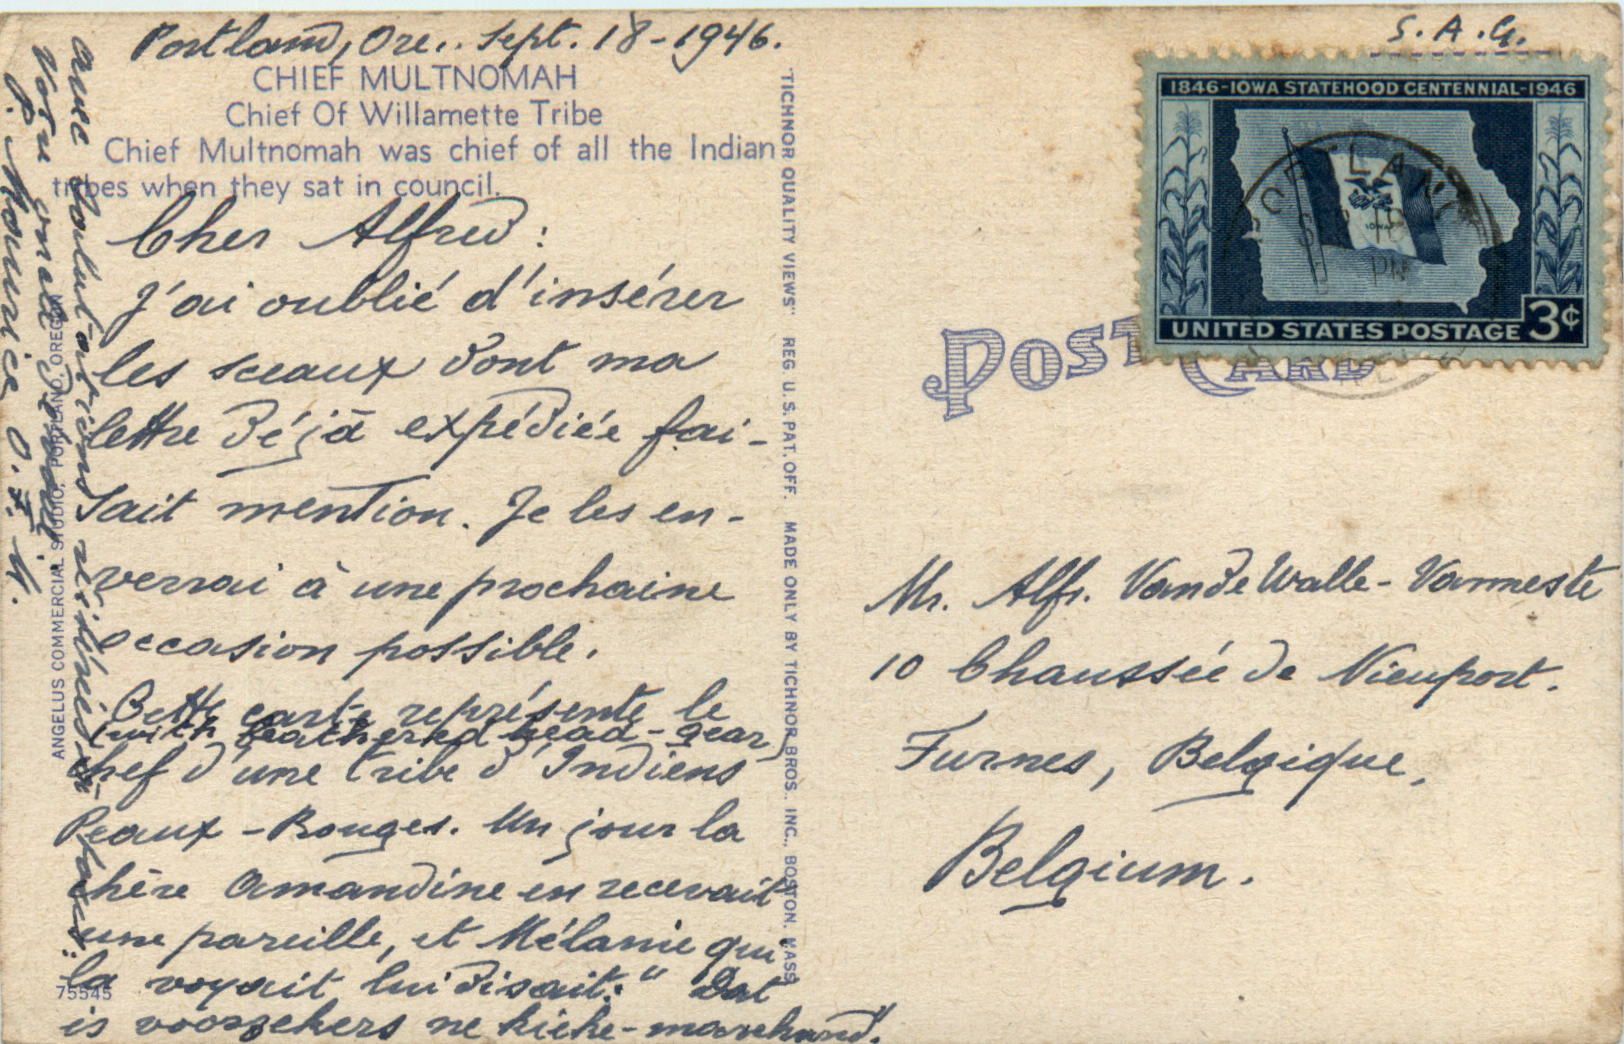 Portland, Ore., Sept. 18-1946.
CHIEF MULTNOMAH
Chief Of Willamette Tribe
Chief Multnomah was chief of all the Indian
tribes when they sat in council.
Cher Alfred:
J'ai oublié d'insérer
les sceaux dont ma
lettre déjà expédiée fai-
sait mention. Je les en-
verrai à une prochaine
occasion possible.
Cette carte représente le
(with feathered head-gear)
chef d'une tribe d'Indiens
Peaux-Rouges. Un jour la
chère Amandine en recevait
une pareille, et Mélanie qui
la voyait lui disait: "Dat
is voorzekers ne kieke-marchand".
75545
avec salutations réitérées à tous:
Votre oncle dévoué.
P. Maurice O.F.M.
ANGELUS COMMERCIAL STUDIO, PORTLAND, OREGON
"TICHNOR QUALITY VIEWS" REG. U.S. PAT. OFF. MADE ONLY BY TICHNOR BROS., INC., BOSTON, MASS.
S.A.G.
1846-IOWA STATEHOOD CENTENNIAL-1946
IOWA
PORTLAND
SEP 18
PM
UNITED STATES POSTAGE 3¢
POST CARD
Mr. Alfr. VandeWalle-Vanneste
10 Chaussée de Nieuport.
Furnes, Belgique,
Belgium.